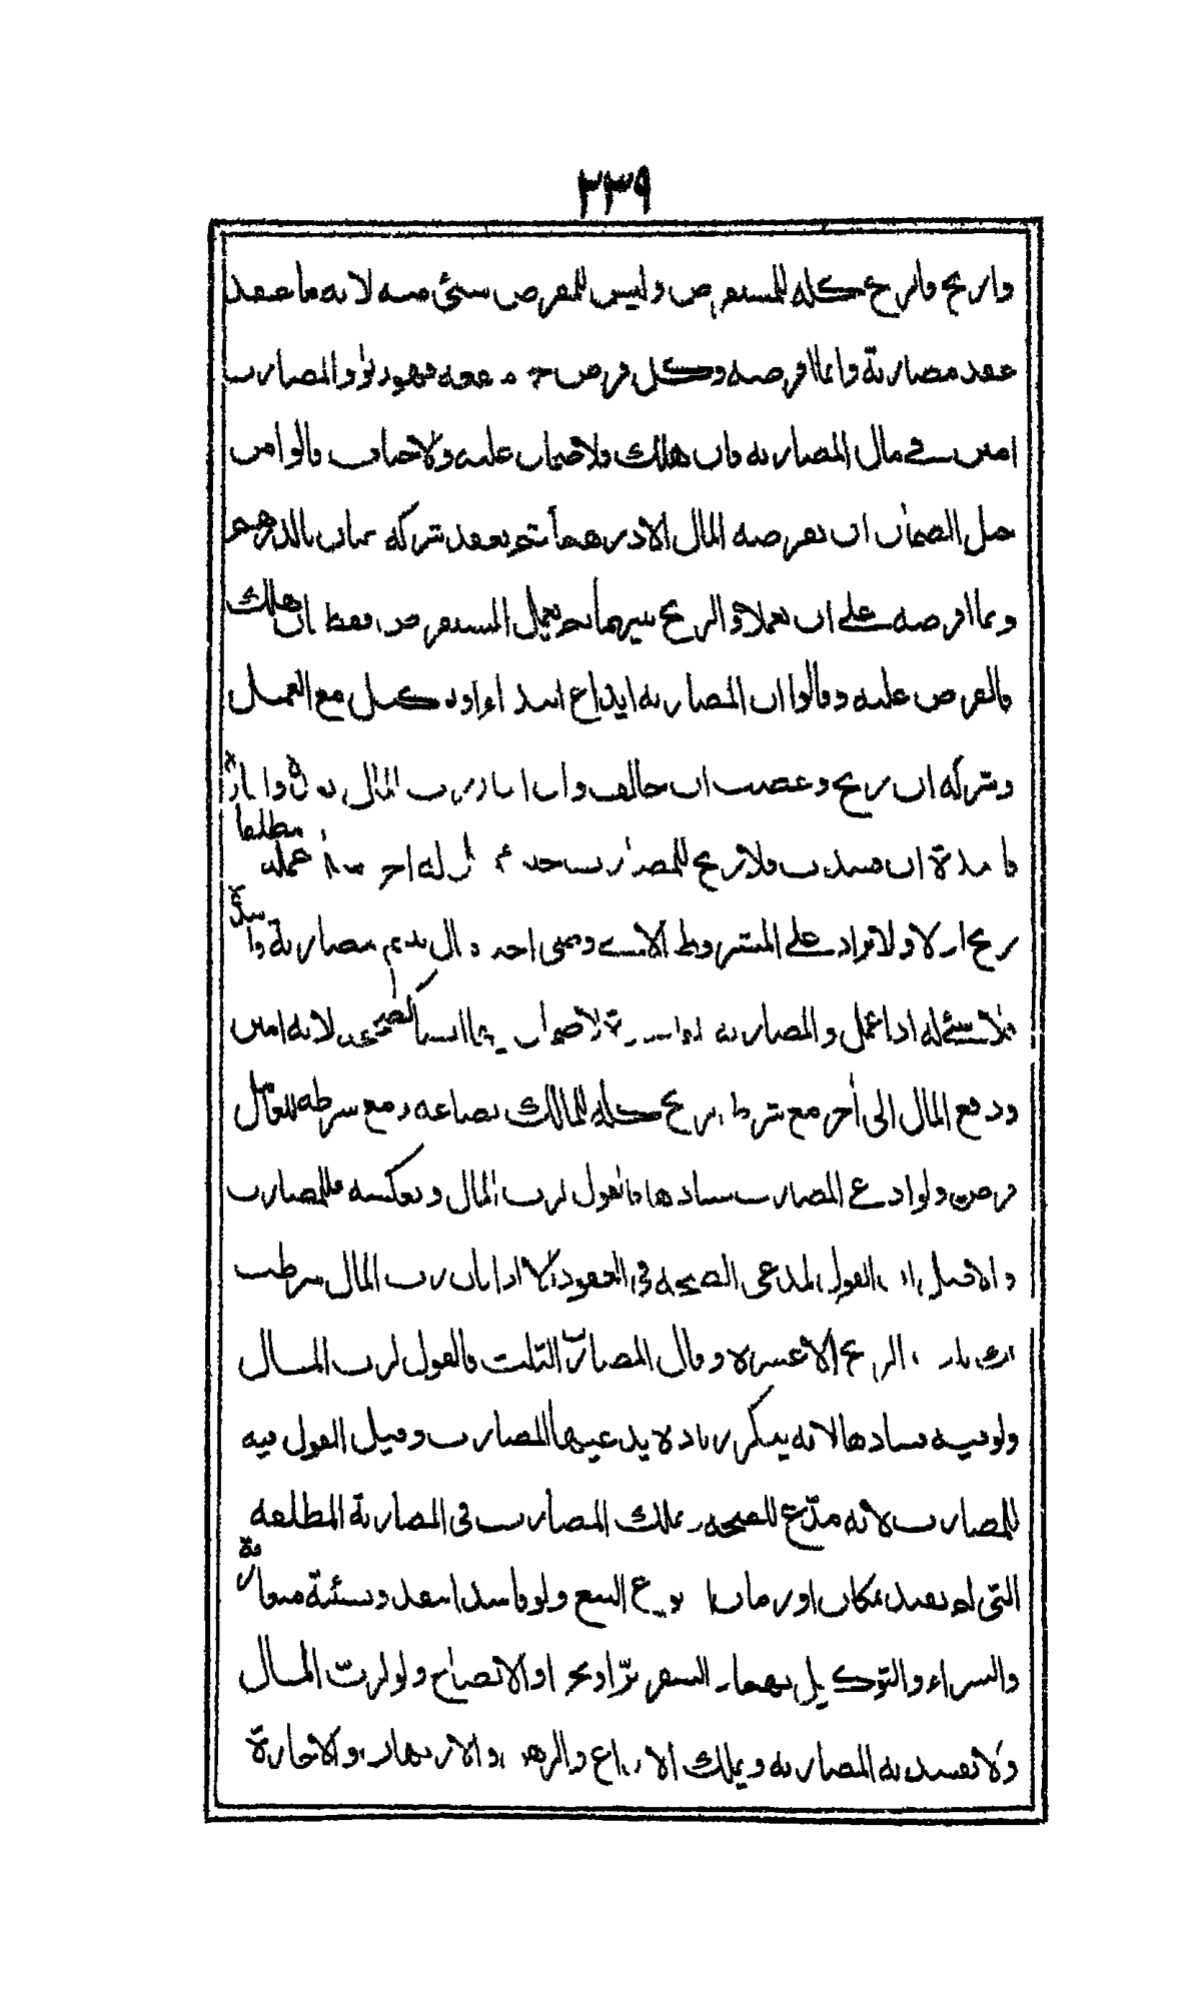 ٢٣٩
وان ربح فالربح كله للمستقرض وليس للمقرض شئ منه لانه ما عقد
عقد مضاربة وانما اقرضه وكل قرض معه فهو ربوا والمضارب
امين في مال المضاربة فان هلك فلا ضمان عليه ولا خلاف قالوا من
حيل الضمان ان يقرضه المال الا درهما ثم يعقد شركة عنان بالدرهم
وبما اقرضه على ان يعملا والربح بينهما ثم يعمل المستقرض فقط فان هلك
فالقرض عليه وقالوا ان المضاربة ايداع ابتداء وتوكيل مع العمل
وشركة ان ربح وغصب ان خالف وان اجاز رب المال بعده واجارة
فاسدة ان فسدت فلا ربح للمضارب حينئذ بل له اجر مثل عمله مطلقا
ربح او لا ولا تزاد على المشروط الا في وصي اخذ مال يتيم مضاربة فاسدة
فلا شئ له اذا عمل والمضاربة لا ضمان فيها ايضا كالصحيحة لانه امين
ودفع المال الى آخر مع شرط الربح كله للمالك بضاعة ومع شرطه للعامل
قرض ولو ادعى المضارب فسادها فالقول لرب المال وبعكسه فللمضارب
والاصل ان القول لمدعي الصحة في العقود الا اذا قال رب المال شرطت
لك ثلث الربح الا عشرة وقال المضارب الثلث فالقول لرب المال
ولو فيه فسادها لانه ينكر زيادة يدعيها المضارب وقيل القول فيه
للمضارب لانه مدّع للصحة ويملك المضارب في المضاربة المطلقة
التي لم تقيد بمكان او زمان او نوع البيع ولو فاسدا بنقد ونسئة متعارفة
والشراء والتوكيل بهما والسفر برّا وبحرا والابضاع ولو لربّ المال
ولا تفسد به المضاربة ويملك الايداع والرهن والارتهان والاجارة